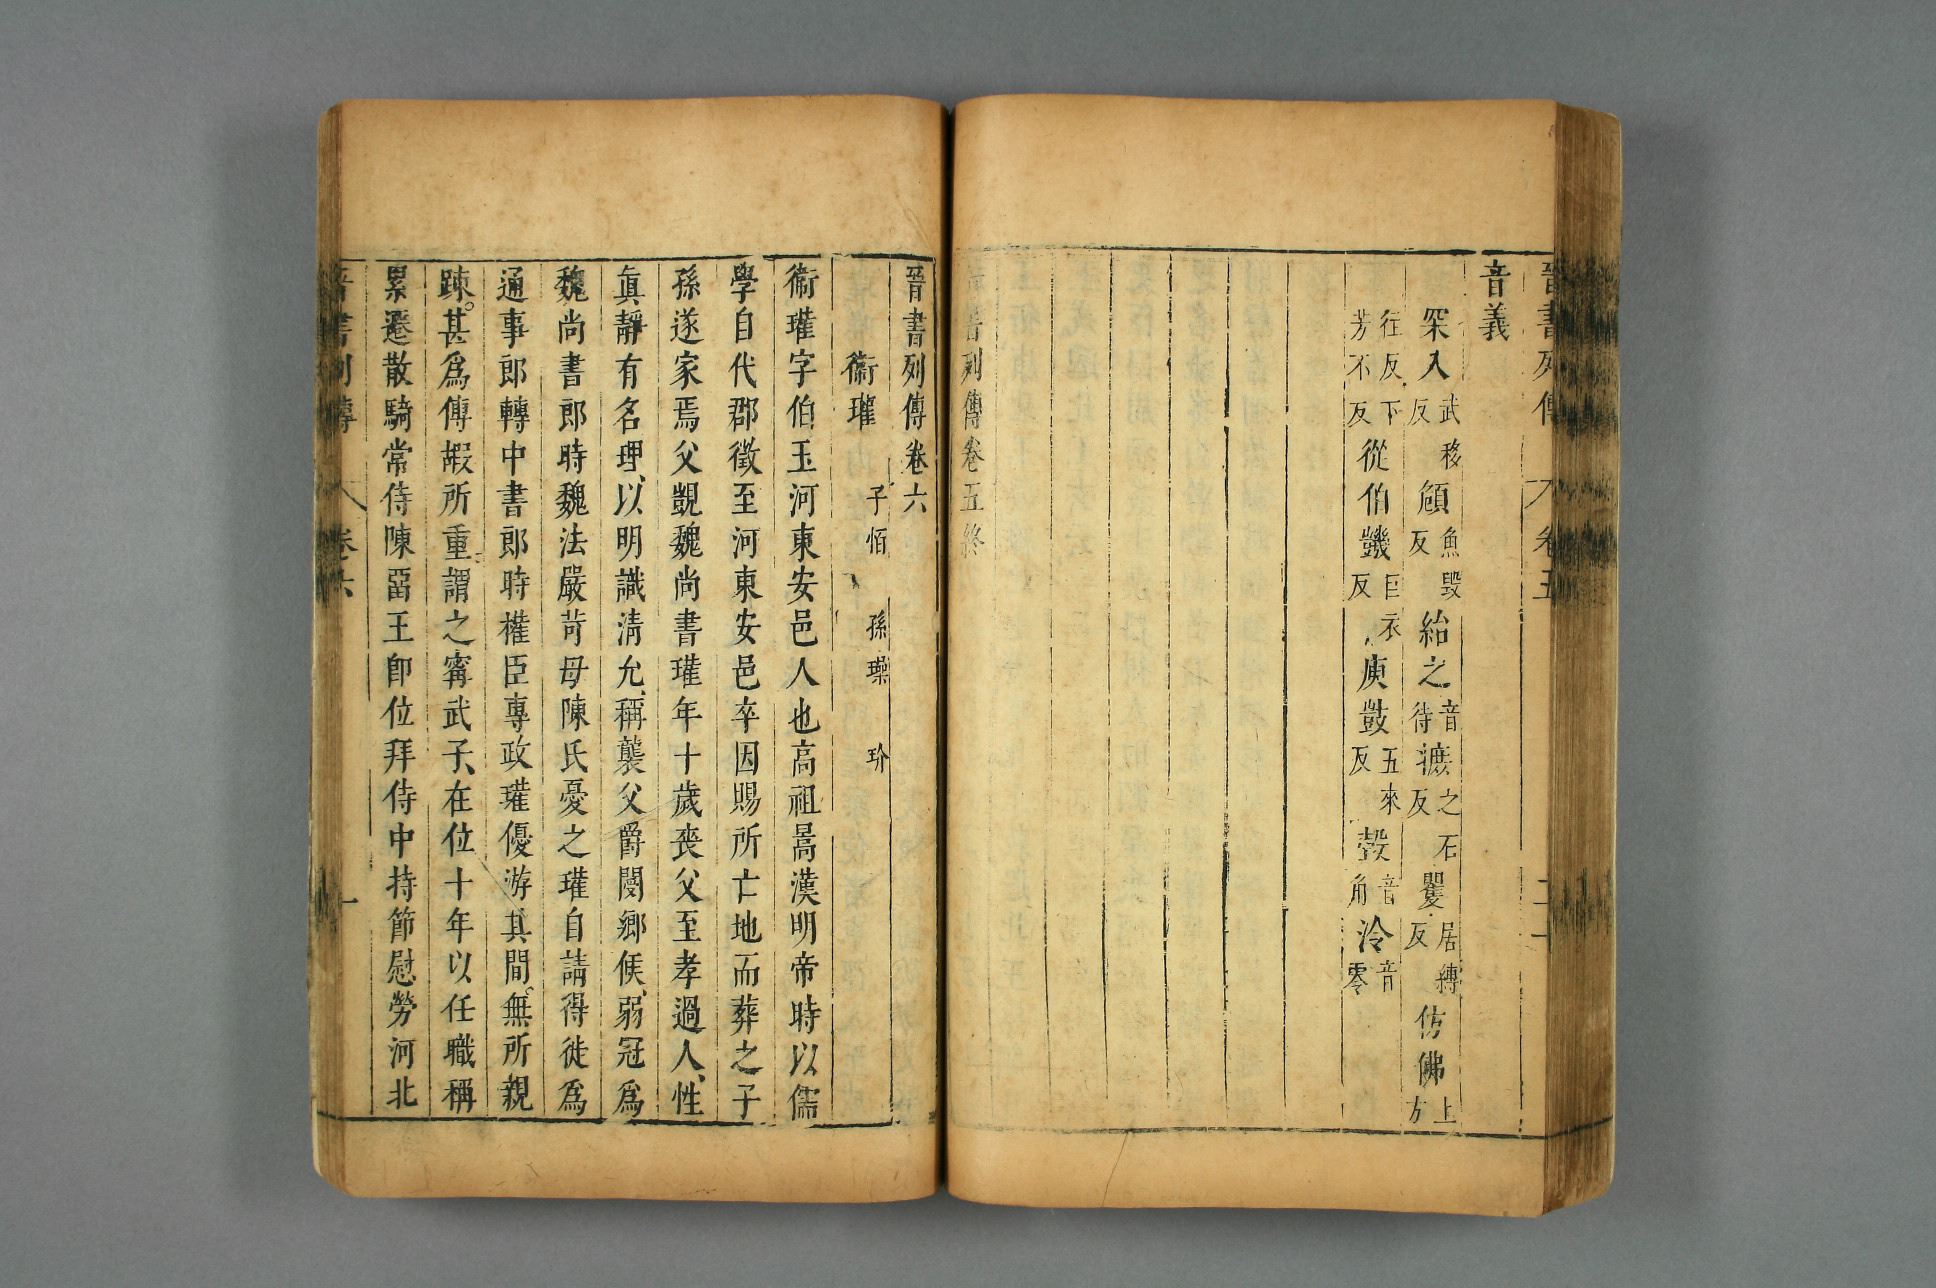 晉書列傳 卷五 二十
音義
冞入武移反 頠魚毀反 紿之音待 摭之石反 矍居縛反 仿佛上方
往反下芳不反 從伯 㡬巨衣反 庾敳五來反 瑴音角 泠音零
晉書列傳卷五終
晉書列傳卷六
衞瓘 子恒 孫璪 玠
衞瓘字伯玉河東安邑人也高祖暠漢明帝時以儒
學自代郡徵至河東安邑卒因賜所亡地而葬之子
孫遂家焉父覬魏尚書瓘年十歲喪父至孝過人、性
眞靜有名理、以明識淸允、稱襲父爵閿鄉侯、弱冠爲
魏尚書郎時魏法嚴苛母陳氏憂之瓘自請得徙爲
通事郎轉中書郎時權臣專政瓘優游其間。無所親
踈。甚爲傅嘏所重謂之甯武子、在位十年以任職稱
累遷散騎常侍陳畱王卽位拜侍中持節慰勞河北
晉書列傳 卷六 一